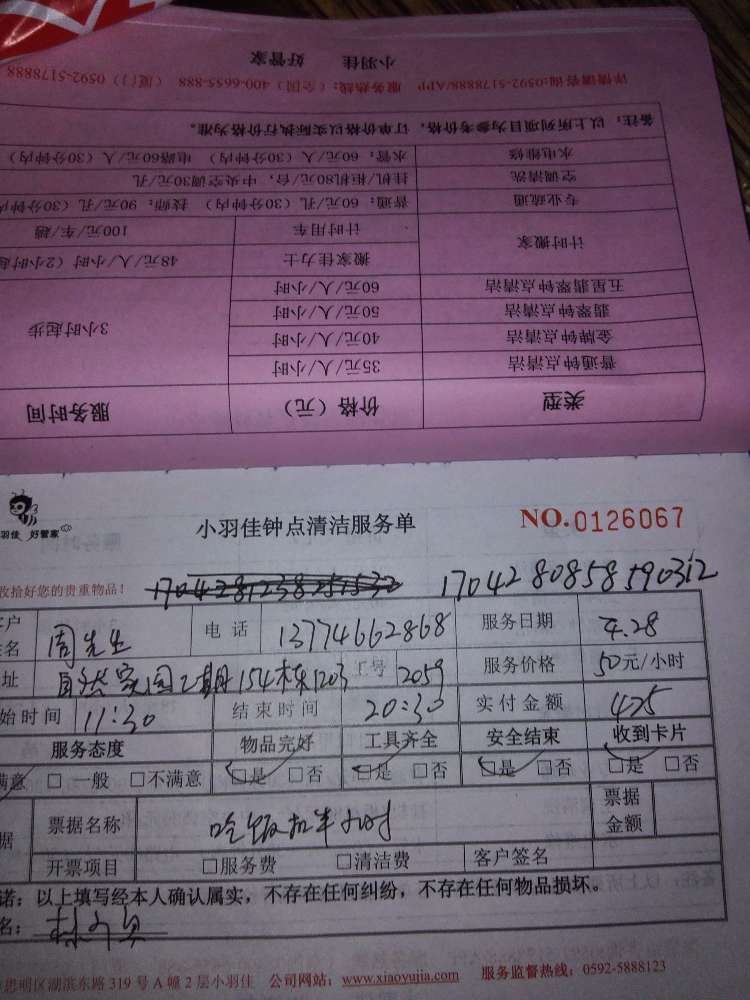 小羽佳 好管家
详情请咨询:0592-5178888/APP 服务热线:(全国)400-6655-888 (厦门)0592-5178888
备注:以上所列项目为参考价格,订单价格以实际执行价格为准。
水电维修 水管:60元/人(30分钟内) 电路60元/人(30分钟内)
空调清洗 挂机/柜机80元/台,中央空调30元/孔
专业疏通 普通:60元/孔(30分钟内) 技师:90元/孔(30分钟内
计时搬家 计时用车 100元/车/趟
搬家佳力士 48元/人/小时(2小时起
五星翡翠钟点清洁 60元/人/小时
翡翠钟点清洁 50元/人/小时
金牌钟点清洁 40元/人/小时 3小时起步
普通钟点清洁 35元/人/小时
类型 价格(元) 服务时间
羽佳 好管家
小羽佳钟点清洁服务单 NO.0126067
收拾好您的贵重物品! 1704280858590312
客户姓名 周先生 电话 13774662868 服务日期 4.28
址 自然家园2期154栋1203 工号 2059 服务价格 50元/小时
始时间 11:30 结束时间 20:30 实付金额 425
服务态度 物品完好 工具齐全 安全结束 收到卡片
满意 □一般 □不满意 □是 □否 □是 □否 □是 □否 □是 □否
据 票据名称 吃饭扣半小时 票据金额
开票项目 □服务费 □清洁费 客户签名
诺:以上填写经本人确认属实,不存在任何纠纷,不存在任何物品损坏。
名:
思明区湖滨东路319号A幢2层小羽佳 公司网站:www.xiaoyujia.com 服务监督热线:0592-5888123